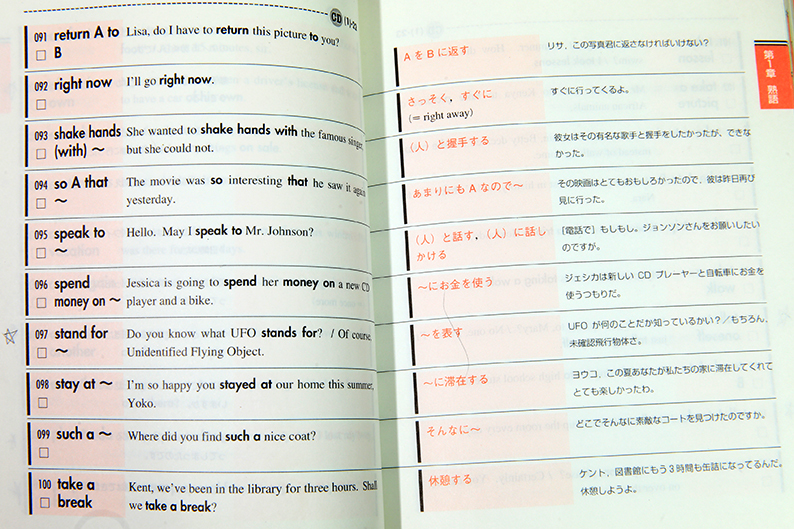 CD
091 return A to Lisa, do I have to return this picture to you?
B
092 right now I'll go right now.
093 shake hands She wanted to shake hands with the famous singer,
(with) ～ but she could not.
094 so A that The movie was so interesting that he saw it again
～ yesterday.
095 speak to Hello. May I speak to Mr. Johnson?
～
096 spend Jessica is going to spend her money on a new CD
money on ～ player and a bike.
097 stand for Do you know what UFO stands for? / Of course.
～ Unidentified Flying Object.
098 stay at ～ I'm so happy you stayed at our home this summer,
Yoko.
099 such a ～ Where did you find such a nice coat?
100 take a Kent, we've been in the library for three hours. Shall
break we take a break?
第1章 熟語
AをBに返す リサ、この写真君に返さなければいけない?
さっそく，すぐに すぐに行ってくるよ。
(= right away)
（人）と握手する 彼女はその有名な歌手と握手をしたかったが、できな
かった。
あまりにもAなので～ その映画はとてもおもしろかったので、彼は昨日再び
見に行った。
（人）と話す，（人）に話し [電話で] もしもし。ジョンソンさんをお願いしたい
かける のですが。
～にお金を使う ジェシカは新しい CD プレーヤーと自転車にお金を
使うつもりだ。
～を表す UFO が何のことだか知っているかい?／もちろん、
未確認飛行物体さ。
～に滞在する ヨウコ、この夏あなたが私たちの家に滞在してくれて
とても楽しかったわ。
そんなに～ どこでそんなに素敵なコートを見つけたのですか。
休憩する ケント、図書館にもう3時間も缶詰になってるんだ。
休憩しようよ。